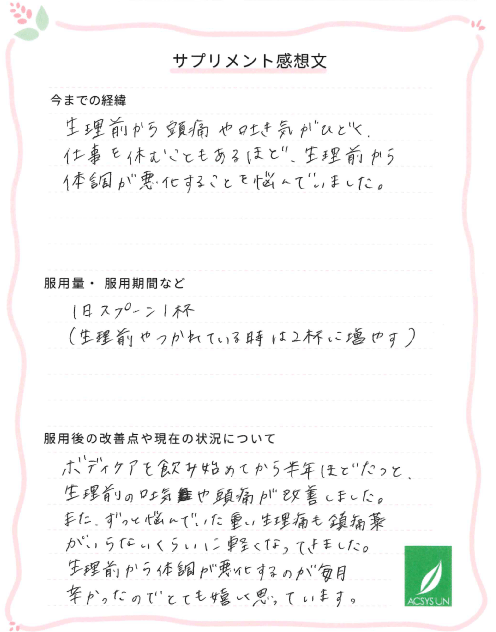 サプリメント感想文
今までの経緯
生理前から頭痛や吐き気がひどく、
仕事を休むこともあるほど、生理前から
体調が悪化することを悩んでいました。
服用量・服用期間など
1日スプーン1杯
(生理前やつかれている時は2杯に増やす)
服用後の改善点や現在の状況について
ボディケアを飲み始めてから半年ほどたつと、
生理前の吐気や頭痛が改善しました。
また、ずっと悩んでいた重い生理痛も鎮痛薬
がいらないくらいに軽くなってきました。
生理前から体調が悪化するのが毎月
辛かったのでとても嬉しく思っています。
ACSYSUN